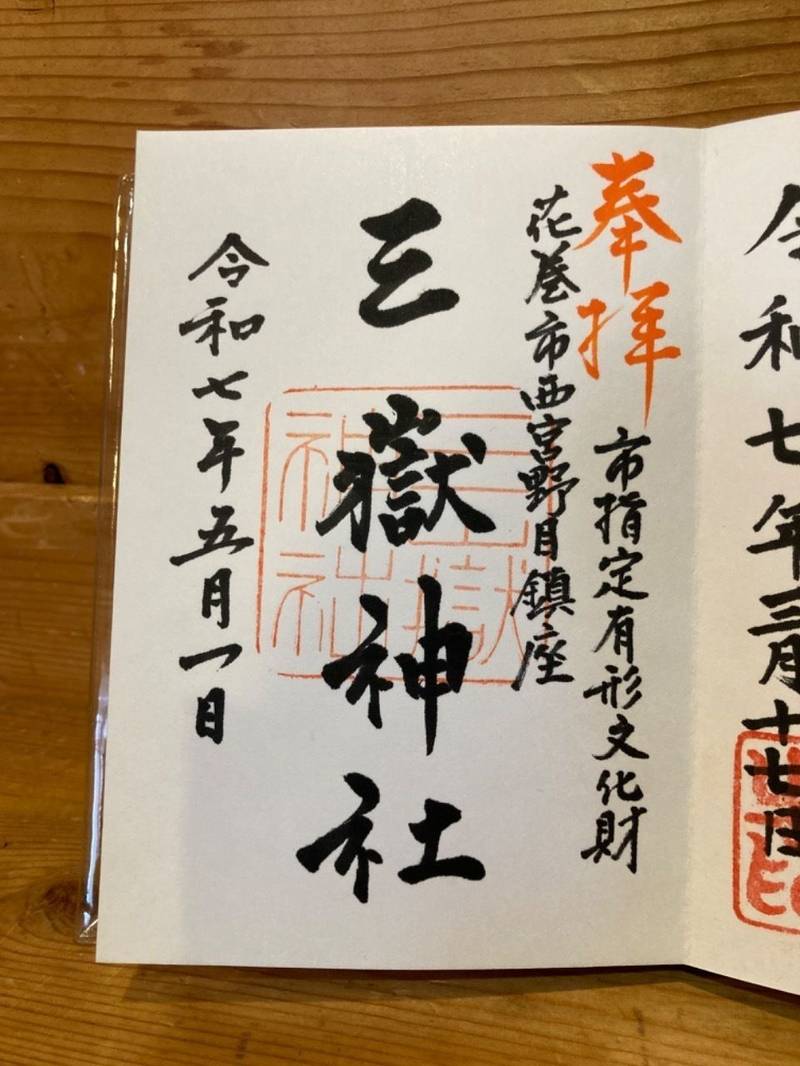 令和七年三月十七日
奉拝
市指定有形文化財
花巻市西宮野目鎮座
三嶽神社
三嶽神社
令和七年五月一日